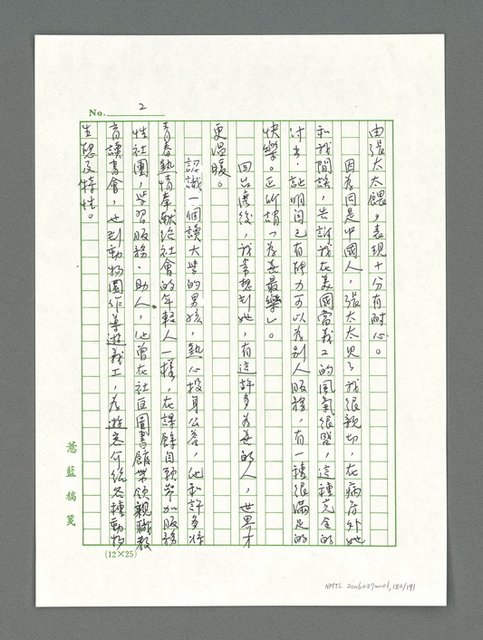 No. 2
由張太太餵，表現十分有耐心。
因為同是中國人，張太太見了我很親切，在病房外她
和我閒談，告訴我在美國當義工的風氣很盛，這種完全的
付出，証明自己有能力可以為別人服務，有一種很滿足的
快樂。正所謂「為善最樂」。
回台灣後，我常想到她，有這許多為善的人，世界才
更溫暖。
認識一個讀大學的男孩，熱心投身公益，他和許多將
青春熱情奉獻給社會的年輕人一樣，在課餘自願參加服務
性社團，學習服務、助人，他曾在社區圖書館帶領親職教
育讀書會，也到動物園作導遊義工，為遊客介紹各種動物
生態及特性。
薏藍稿箋
(12×25)
NMTL 20060370001,180/191